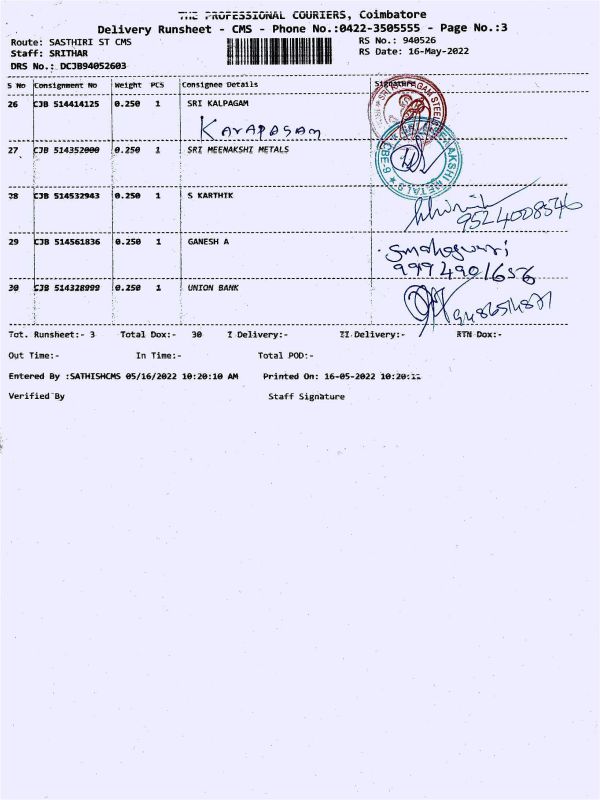 THE PROFESSIONAL COURIERS, Coimbatore
Delivery Runsheet - CMS - Phone No.:0422-3505555 - Page No.:3
Route: SASTHIRI ST CMS RS No.: 940526
Staff: SRITHAR RS Date: 16-May-2022
DRS No.: DCJB94052603
S No Consignment No Weight PCS Consignee Details Signature
26 CJB 514414125 0.250 1 SRI KALPAGAM
27 CJB 514352000 0.250 1 SRI MEENAKSHI METALS
28 CJB 514532943 0.250 1 S KARTHIK
9524008546
29 CJB 514561836 0.250 1 GANESH A
30 CJB 514328999 0.250 1 UNION BANK
Tot. Runsheet:- 3 Total Dox:- 30 I Delivery:- II Delivery:- RTN Dox:-
Out Time:- In Time:- Total POD:-
Entered By :SATHISHCMS 05/16/2022 10:20:10 AM Printed On: 16-05-2022 10:20:12
Verified By Staff Signature